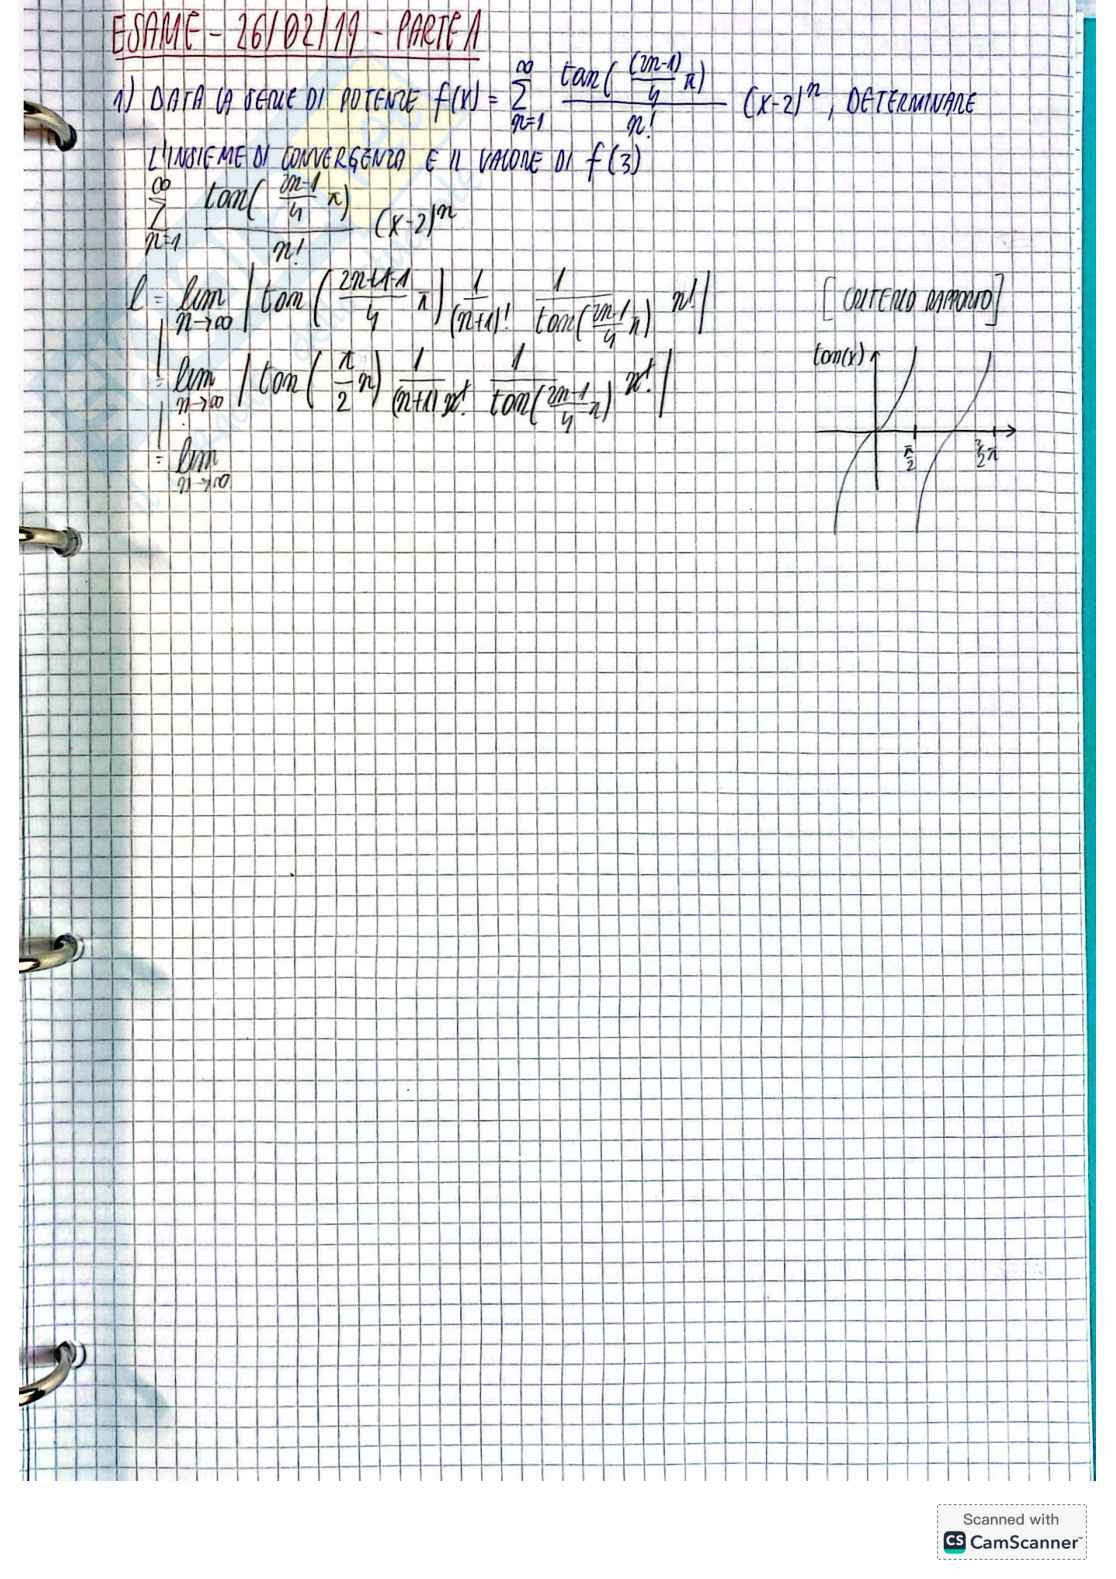 ESAME - 26/02/19 - PARTE 1
1) DATA LA SERIE DI POTENZE f(x) = ∑_{n=1}^{∞} tan((2n-1)/4 π)/n! (x-2)^n, DETERMINARE
L'INSIEME DI CONVERGENZA E IL VALORE DI f(3)
∑_{n=1}^{∞} tan((2n-1)/4 π)/n! (x-2)^n
l = lim_{n→∞} | tan((2n+1-1)/4 π) 1/(n+1)! 1/tan((2n-1)/4 π) n! | [CRITERIO RAPPORTO]
= lim_{n→∞} | tan(π/2 n) 1/((n+1) n!) 1/tan((2n-1)/4 π) n! |
= lim_{n→∞}
tan(x)
π/2 3/2 π
Scanned with
CS CamScanner